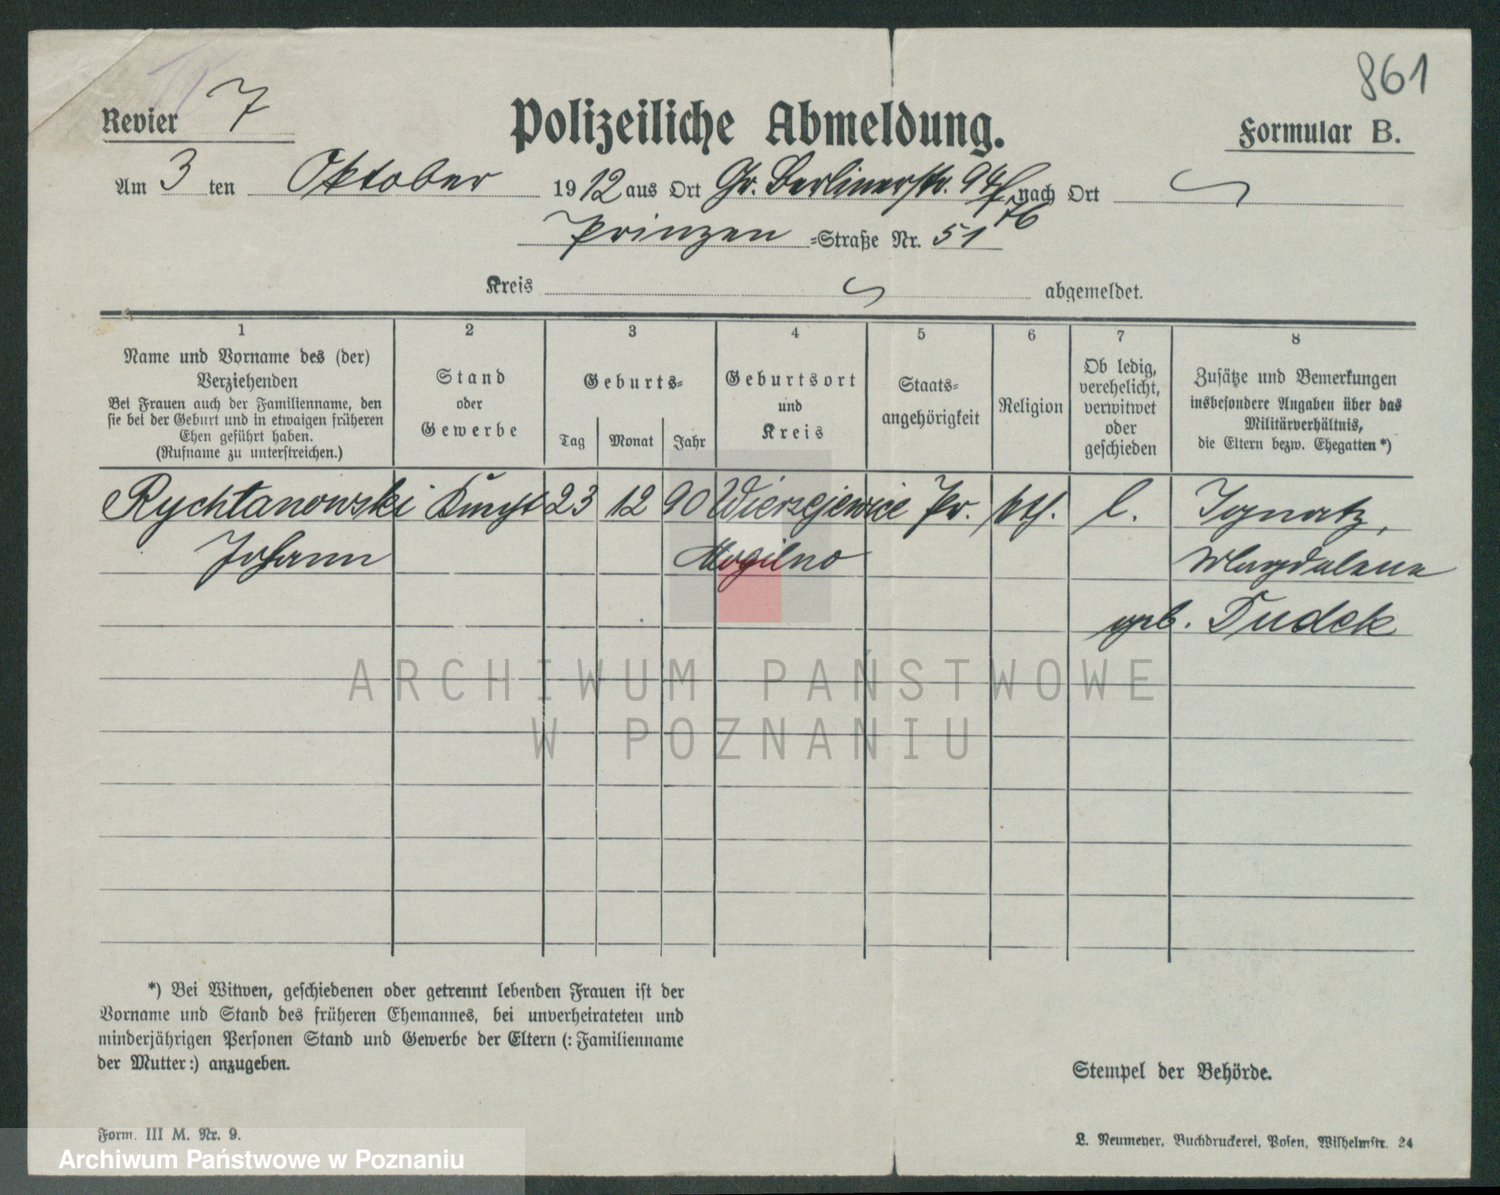 861
Revier 7
Polizeiliche Abmeldung.
Formular B.
Am 3 ten Oktober 1912 aus Ort Gr. Berlinerstr. 94 nach Ort
Prinzen =Straße Nr. 51
76
Kreis abgemeldet.
1 2 3 4 5 6 7 8
Name und Vorname des (der)
Verziehenden
Bei Frauen auch der Familienname, den
sie bei der Geburt und in etwaigen früheren
Ehen geführt haben.
(Rufname zu unterstreichen.)
Stand
oder
Gewerbe
Geburts=
Tag Monat Jahr
Geburtsort
und
Kreis
Staats=
angehörigkeit
Religion
Ob ledig,
verehelicht,
verwitwet
oder
geschieden
Zusätze und Bemerkungen
insbesondere Angaben über das
Militärverhältnis,
die Eltern bezw. Ehegatten*)
Rychtanowski 23 12 90 Wierzejewice Pr. kth. l. Ignatz,
Johann Mogilno Magdalena
geb. Dudek
ARCHIWUM PAŃSTWOWE
W POZNANIU
*) Bei Witwen, geschiedenen oder getrennt lebenden Frauen ist der
Vorname und Stand des früheren Ehemannes, bei unverheirateten und
minderjährigen Personen Stand und Gewerbe der Eltern (: Familienname
der Mutter:) anzugeben.
Stempel der Behörde.
Form. III M. Nr. 9.
L. Neumeyer, Buchdruckerei, Posen, Wilhelmstr. 24
Archiwum Państwowe w Poznaniu